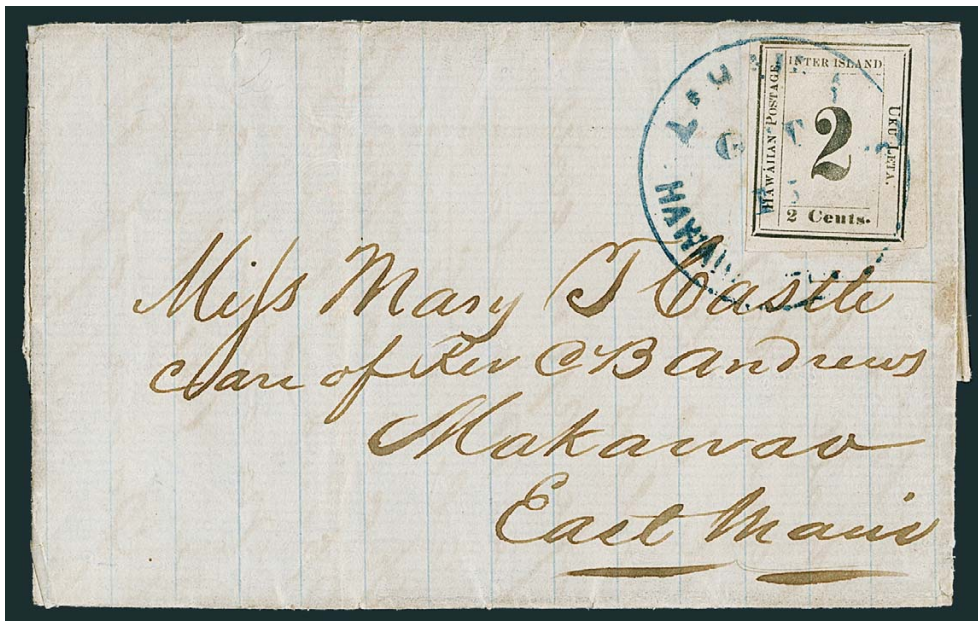 INTER ISLAND
HAWAIIAN POSTAGE
2
UKU LETA.
2 Cents.
HAWAIIAN
Miss Mary T Castle
Care of Rev C B Andrews
Makawao
East Maui